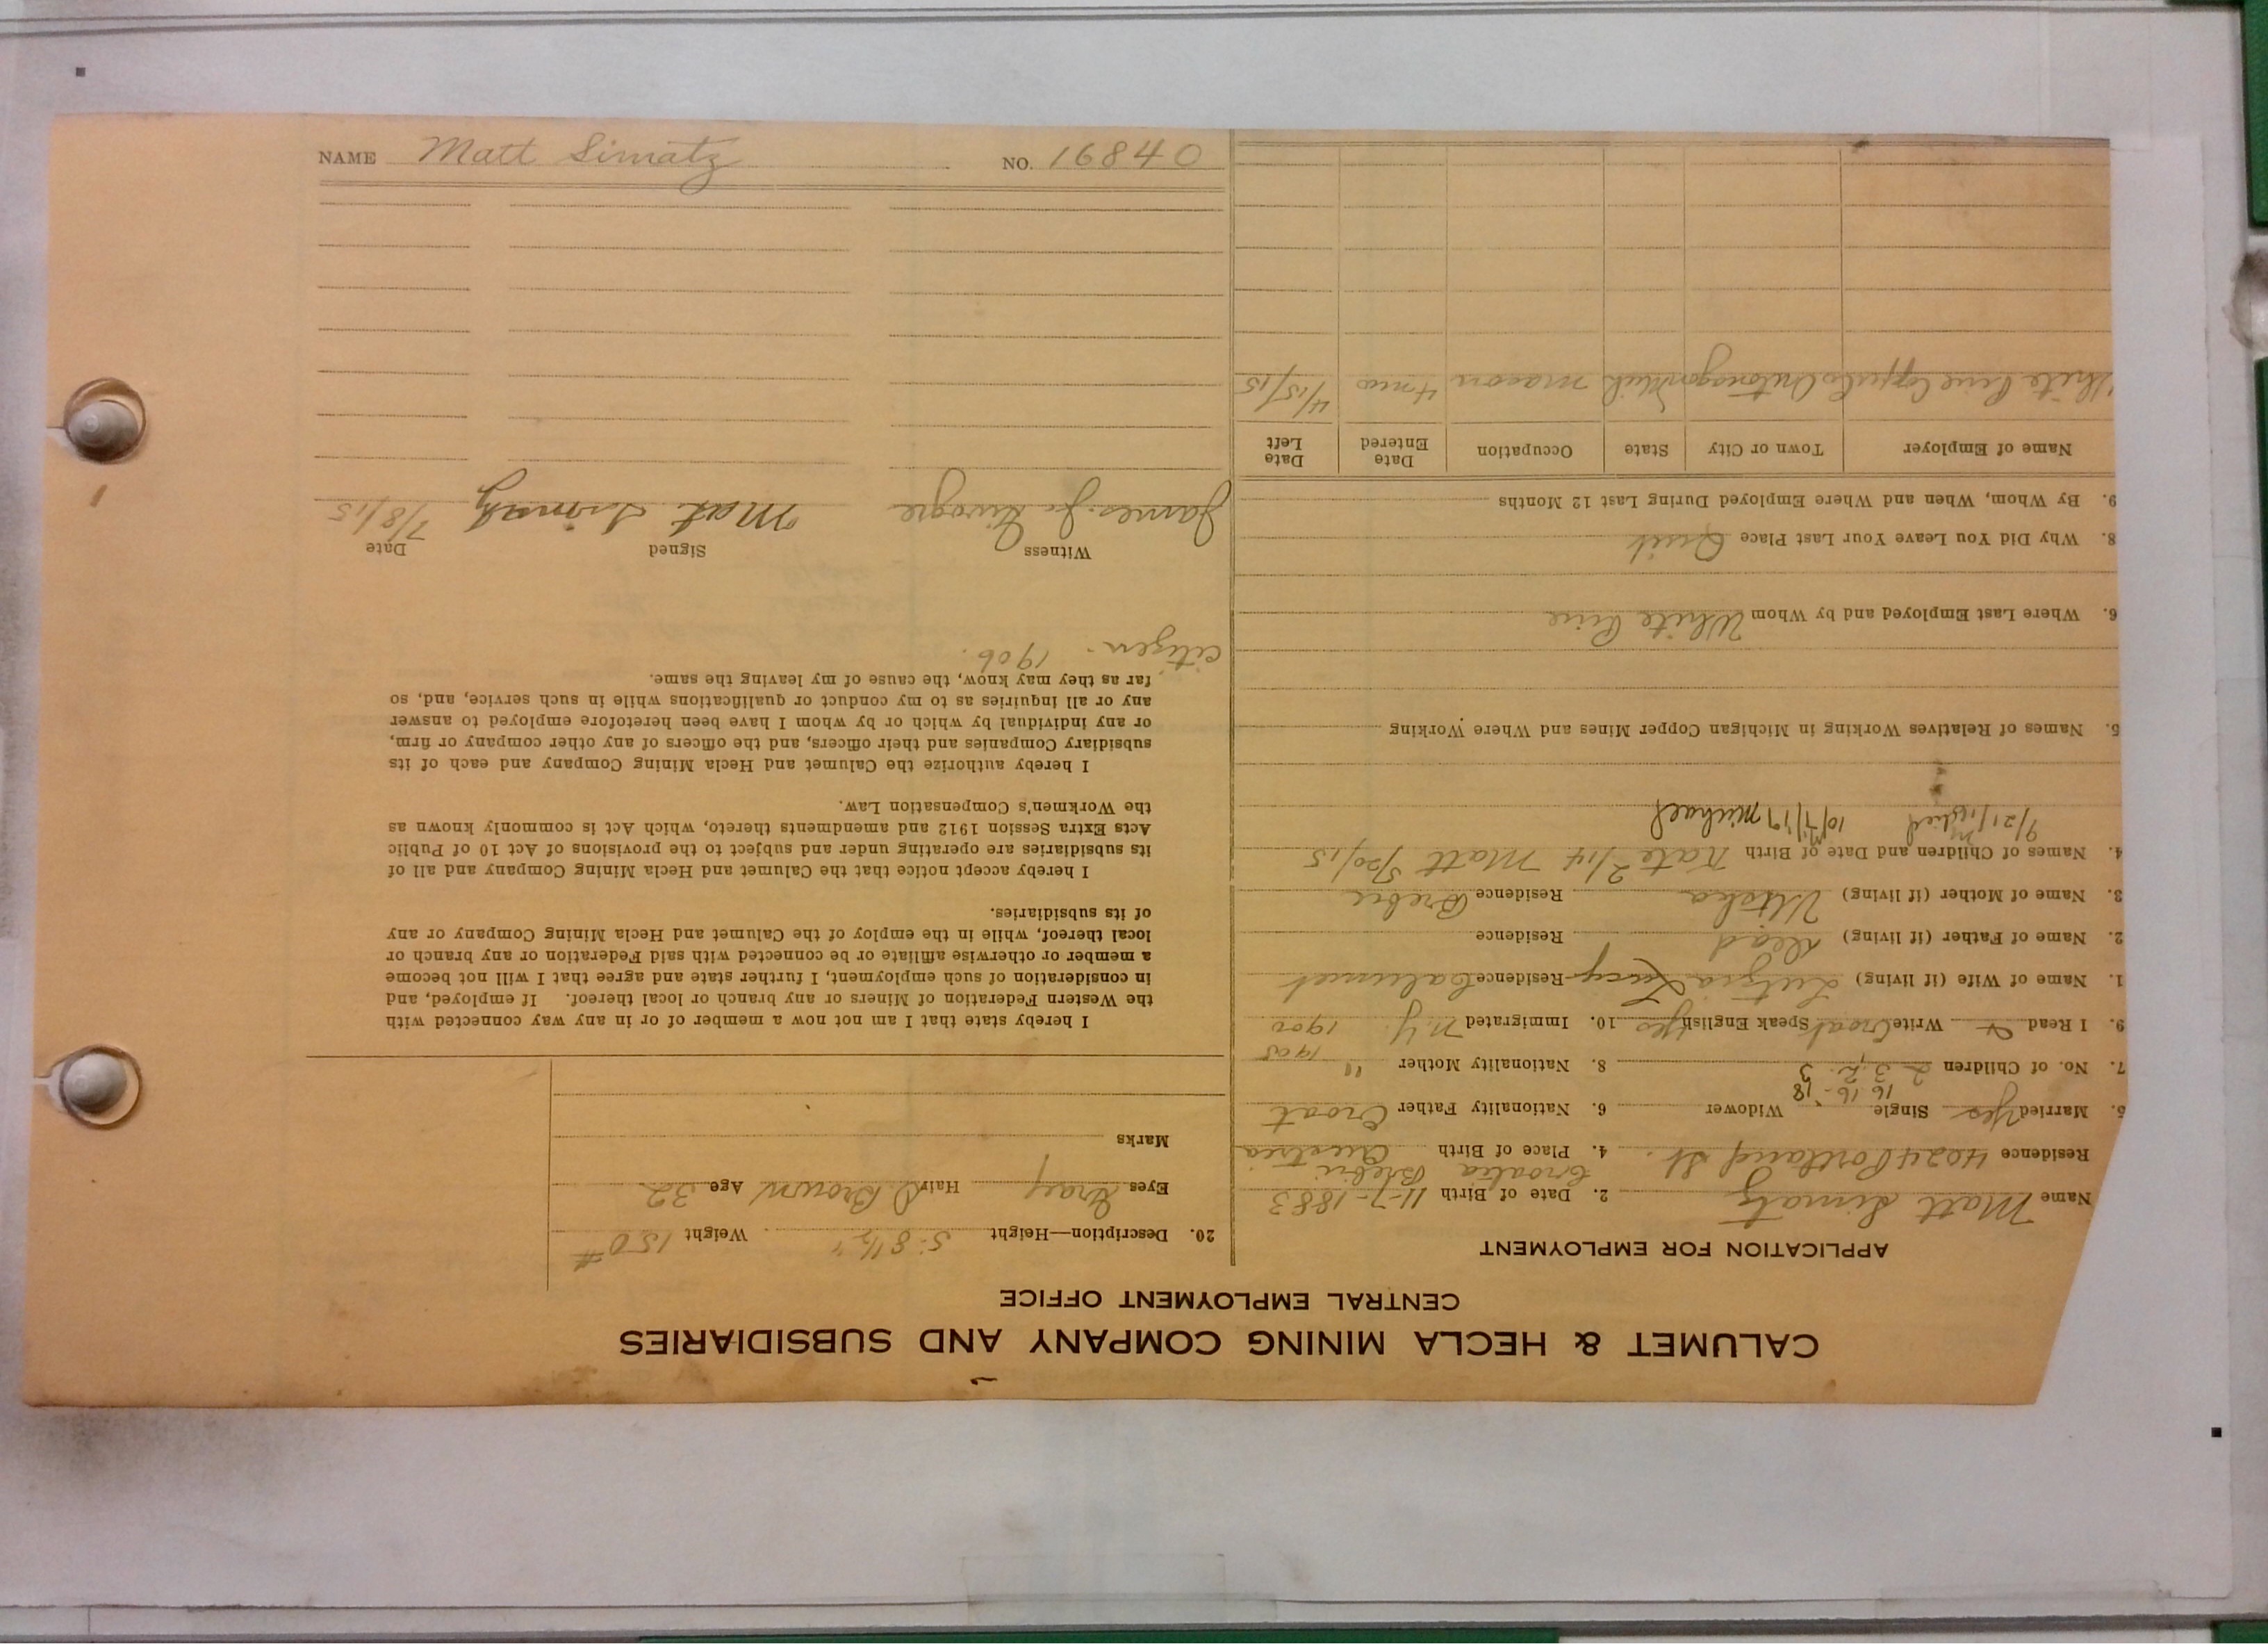 CALUMET & HECLA MINING COMPANY AND SUBSIDIARIES
CENTRAL EMPLOYMENT OFFICE
APPLICATION FOR EMPLOYMENT
Name Matt Simatz 2. Date of Birth 11-7-1883
Croatia
Residence 4024 Portland St. 4. Place of Birth Austria
5. Married Yes Single Widower 6. Nationality Father Croat
16 16 - 18
7. No. of Children 2 3 2 3 8. Nationality Mother "
9. I Read Write Croat Speak English yes 10. Immigrated N.Y. 1900
1905
1. Name of Wife (if living) Lucy Residence Calumet
2. Name of Father (if living) Dead Residence
3. Name of Mother (if living) Residence
4. Names of Children and Date of Birth Kate 2/14 Matt 5/20/15
9/21/16 10/7/17 Michael
5. Names of Relatives Working in Michigan Copper Mines and Where Working
6. Where Last Employed and by Whom White Pine
8. Why Did You Leave Your Last Place Quit
9. By Whom, When and Where Employed During Last 12 Months
Name of Employer Town or City State Occupation Date Entered Date Left
White Pine Copper Co Ontonagon Mich mason 4 mos 4/15/15
20. Description—Height 5' 8 1/2" Weight 150 #
Eyes Gray Hair D Brown Age 32
Marks
I hereby state that I am not now a member of or in any way connected with
the Western Federation of Miners or any branch or local thereof. If employed, and
in consideration of such employment, I further state and agree that I will not become
a member or otherwise affiliate or be connected with said Federation or any branch or
local thereof, while in the employ of the Calumet and Hecla Mining Company or any
of its subsidiaries.
I hereby accept notice that the Calumet and Hecla Mining Company and all of
its subsidiaries are operating under and subject to the provisions of Act 10 of Public
Acts Extra Session 1912 and amendments thereto, which Act is commonly known as
the Workmen's Compensation Law.
I hereby authorize the Calumet and Hecla Mining Company and each of its
subsidiary Companies and their officers, and the officers of any other company or firm,
or any individual by which or by whom I have been heretofore employed to answer
any or all inquiries as to my conduct or qualifications while in such service, and, so
far as they may know, the cause of my leaving the same.
citizen - 1906.
Witness Signed Date
James J. Mat 7/8/15
NAME Matt Simatz NO. 16840